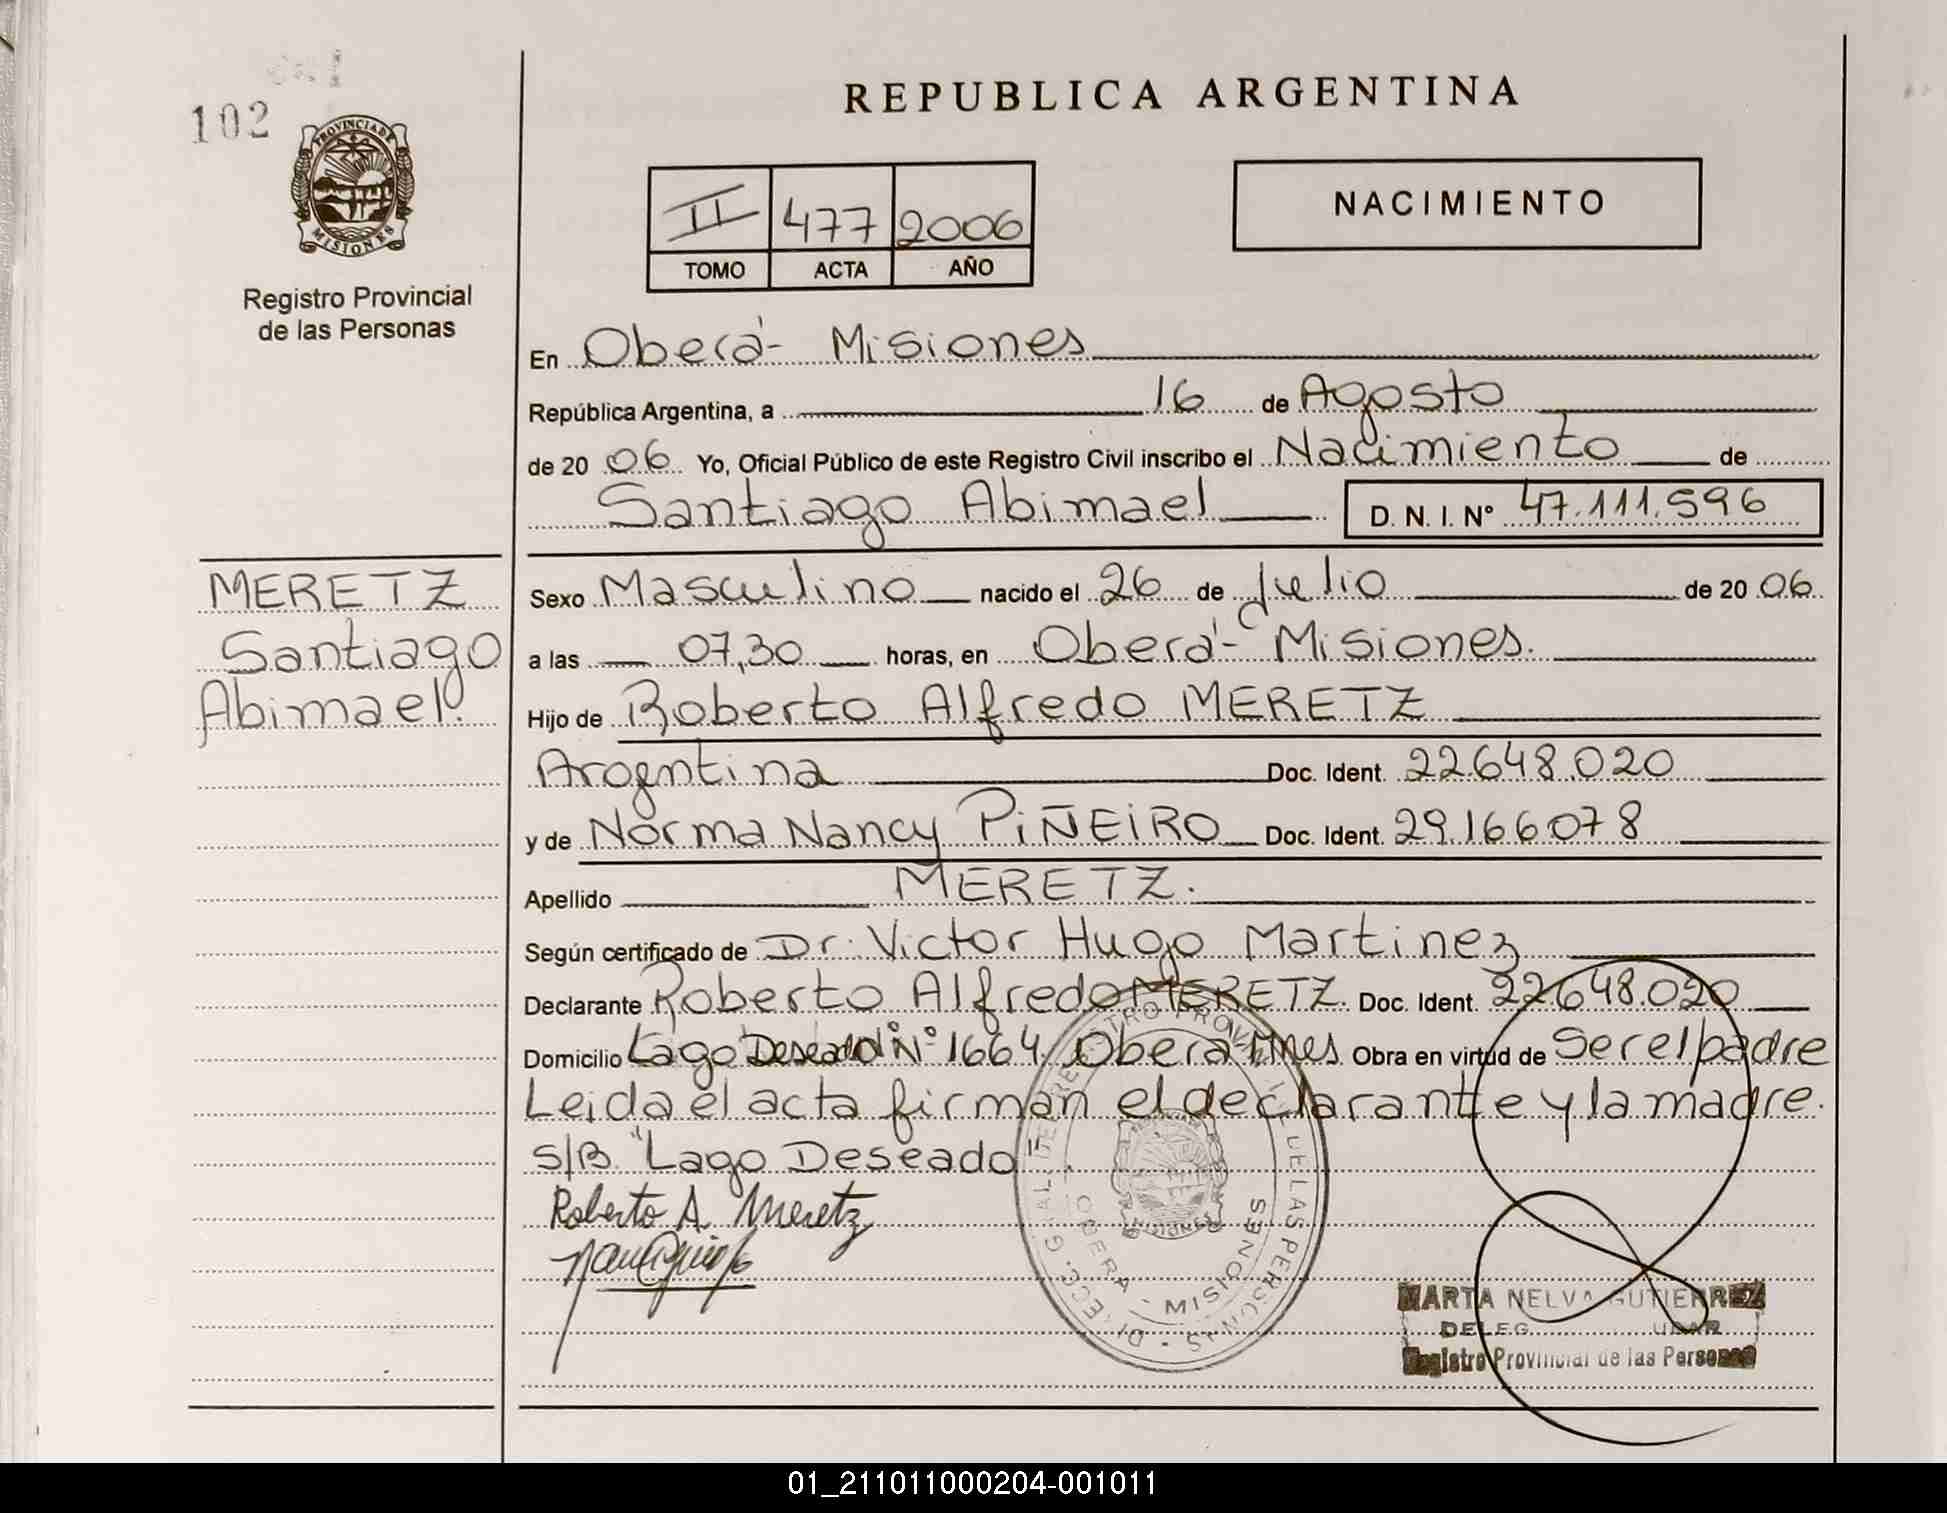 102
PROVINCIA DE
MISIONES
Registro Provincial
de las Personas
REPUBLICA ARGENTINA
II 477 2006
TOMO ACTA AÑO
NACIMIENTO
En Oberá - Misiones
República Argentina, a 16 de Agosto
de 20 06 Yo, Oficial Público de este Registro Civil inscribo el Nacimiento de
Santiago Abimael D. N. I. N° 47.111.596
MERETZ
Santiago
Abimael.
Sexo Masculino nacido el 26 de Julio de 20 06
a las 07,30 horas, en Oberá - Misiones.
Hijo de Roberto Alfredo MERETZ
Argentina Doc. Ident. 22.648.020
y de Norma Nancy PIÑEIRO Doc. Ident. 29.166078
Apellido MERETZ.
Según certificado de Dr. Victor Hugo Martinez
Declarante Roberto Alfredo MERETZ. Doc. Ident. 22.648.020
Domicilio Lago Deseado N° 1664. Oberá Mnes Obra en virtud de Ser el padre
Leida el acta firman el declarante y la madre.
S/B. "Lago Deseado"
Roberto A. Meretz
OBERA - MISIONES
MISIONES
MARTA NELVA GUTIERREZ
Registro Provincial de las Personas
01_211011000204-001011